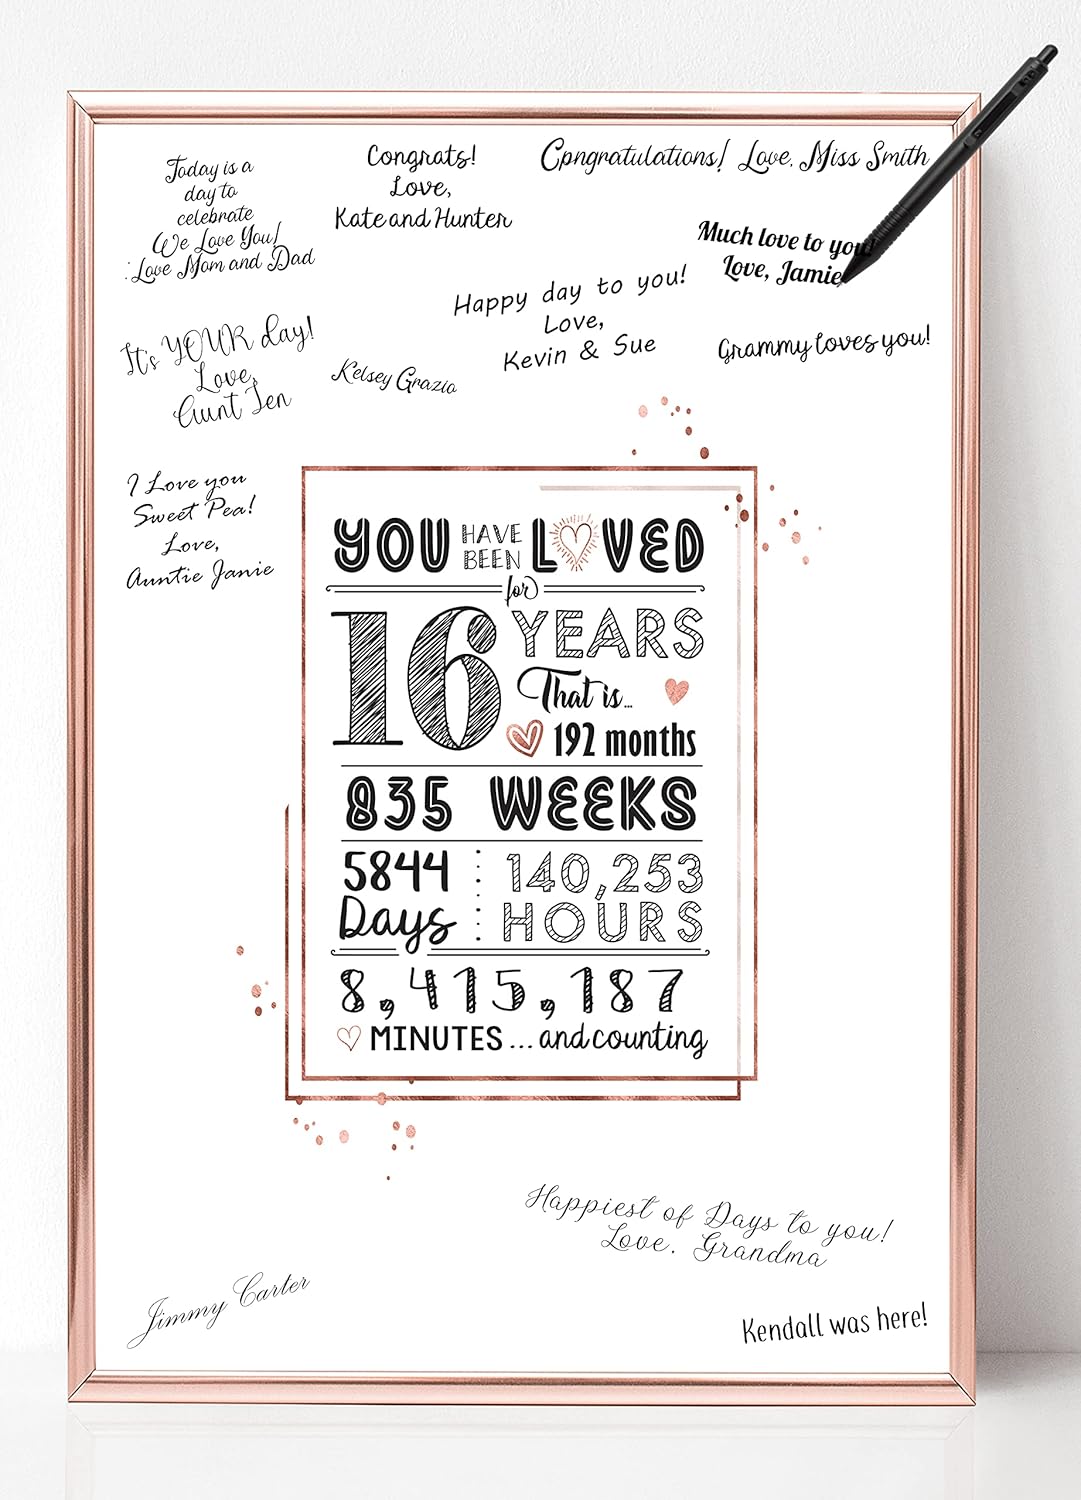 Today is a
day to
celebrate
We Love You!
Love Mom and Dad
Congrats!
Love,
Kate and Hunter
Cpngratulations! Love, Miss Smith
Much love to you!
Love, Jamie
Happy day to you!
Love,
Kevin & Sue
Grammy loves you!
It's YOUR day!
Love,
Aunt Jen
Kelsey Grazia
I Love you
Sweet Pea!
Love,
Auntie Janie
YOU HAVE BEEN LOVED
for
16 YEARS
That is...
192 months
835 WEEKS
5844 Days
140,253 HOURS
8,415,187
MINUTES ... and counting
Happiest of Days to you!
Love, Grandma
Jimmy Carter
Kendall was here!